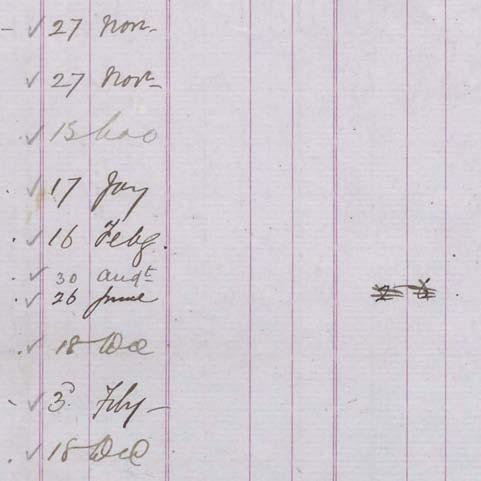 27 Nov.
27 Nov.
17 Jay
16 Feby.
30 Augt
26 June
18 Dec
3 Feby
18 Dec